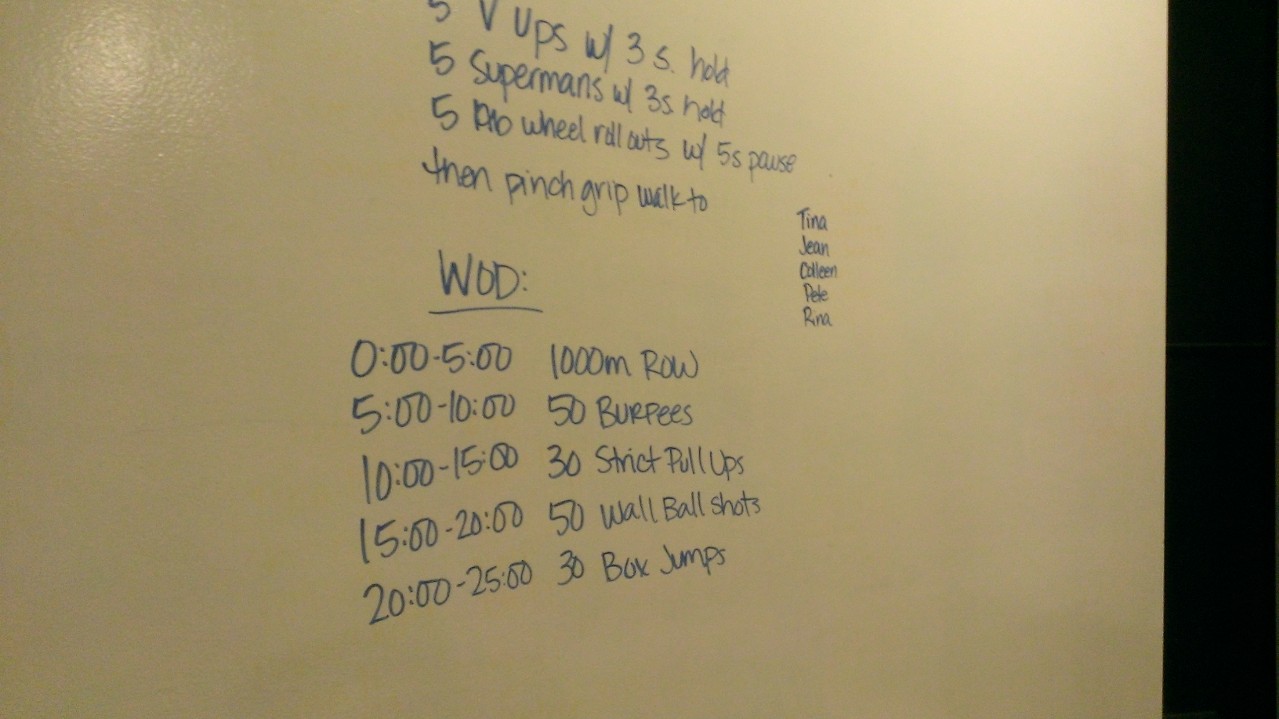 5 V Ups w/ 3 s. hold
5 Supermans w/ 3s hold
5 Ab wheel roll outs w/ 5s pause
then pinch grip walk to
Tina
Jean
Colleen
Pete
Rina
WOD:
0:00-5:00 1000m Row
5:00-10:00 50 Burpees
10:00-15:00 30 Strict Pull Ups
15:00-20:00 50 Wall Ball Shots
20:00-25:00 30 Box Jumps